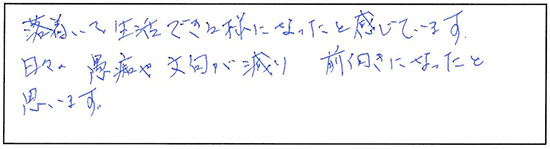 落着いて生活できる様になったと感じています。
日々の愚痴や文句が減り 前向きになったと
思います。